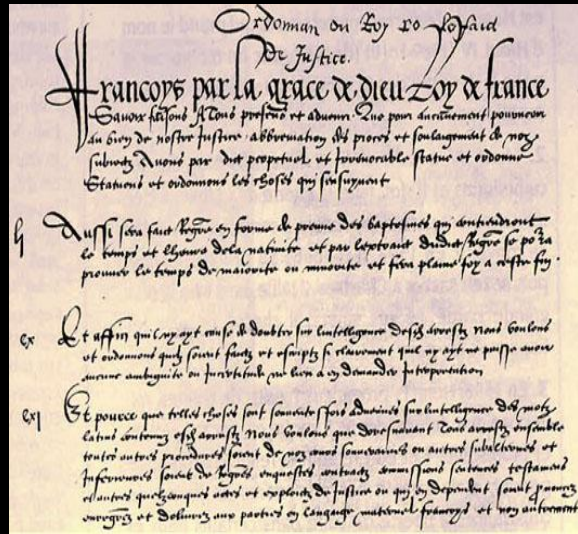 Ordonnan du Roy
De Justice
Francoys par la grace de dieu Roy de france
Savoir faisons A tous presens et advenir Que pour aucunement pourveoir
au bien de nostre Justice abbreviation des proces et soulagement de noz
subiectz Avons par edict perpetuel et Irrevocable statue et ordonne
Statuons et ordonnons les choses qui sensuyvent
li Aussi sera faict Regre en forme de preuve des baptesmes qui contiendront
le temps et lheure dela nativite et par lextraict dudict Regre se porra
prouver le temps de maiorite ou minorite et fera plaine foy a ceste fin
cx Et affin quil ny ayt cause de doubter sur lintelligence desdz arrestz Nous voulons
et ordonnons quilz soient faictz et escriptz si clairement quil ny ayt ne puisse avoir
aucune ambiguite ou Incertitude ne lieu a en demander Interpretation
cxi Et pource que telles choses sont souventesfois advenues sur lintelligence des motz
latins contenuz esdz arrestz Nous voulons que doresnavant Tous arrestz ensemble
toutes autres procedures soient de noz cours souveraines ou autres subalternes et
Inferieures soient de Regres, enquestes, contractz commissions sentences testamens
et autres quelzconques actes et exploictz de Justice ou qui en dependent soient prononcez
enregrez et delivrez aux parties en langaige maternel francoys et non autrement